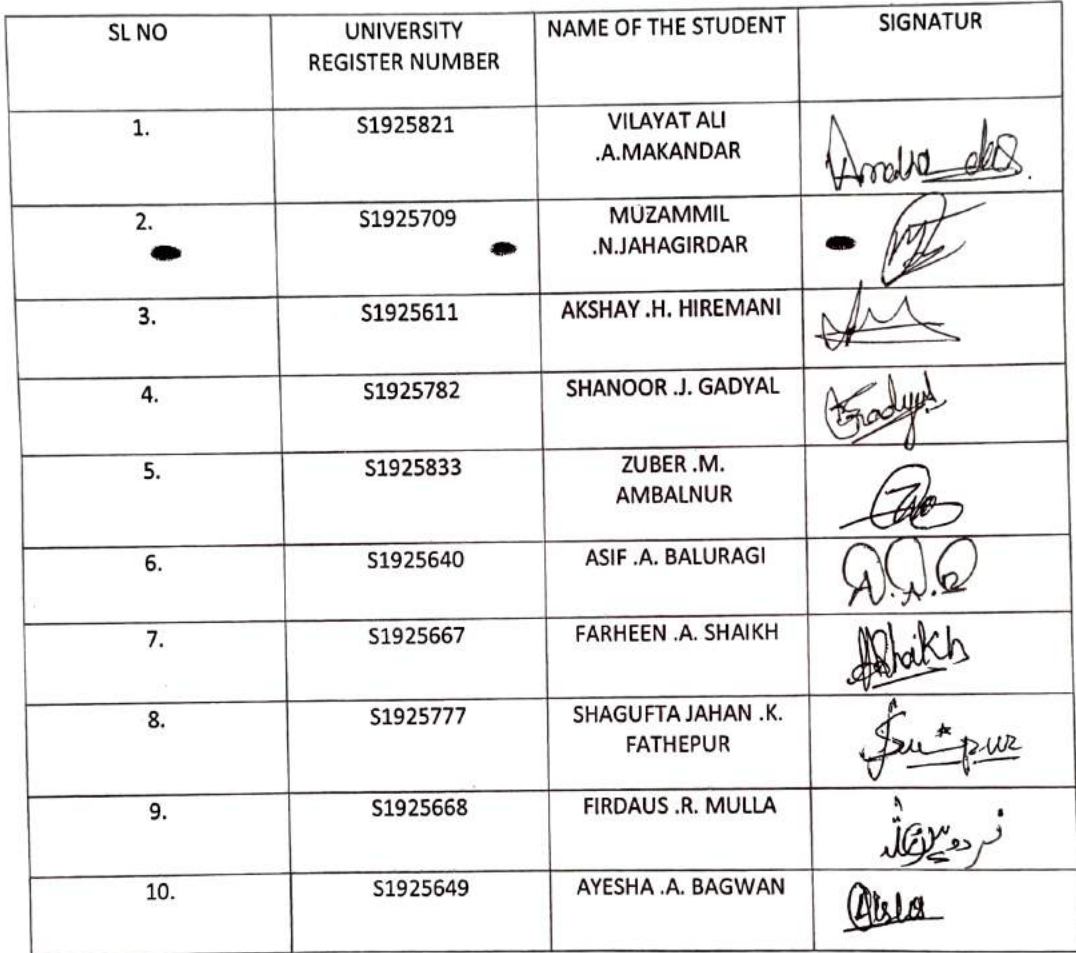 SL NO
UNIVERSITY
REGISTER NUMBER
NAME OF THE STUDENT
SIGNATUR
1.
S1925821
VILAYAT ALI
.A.MAKANDAR
2.
S1925709
MUZAMMIL
.N.JAHAGIRDAR
3.
S1925611
AKSHAY .H. HIREMANI
4.
S1925782
SHANOOR .J. GADYAL
Gadyal
5.
S1925833
ZUBER .M.
AMBALNUR
6.
S1925640
ASIF .A. BALURAGI
7.
S1925667
FARHEEN .A. SHAIKH
AShaikh
8.
S1925777
SHAGUFTA JAHAN .K.
FATHEPUR
9.
S1925668
FIRDAUS .R. MULLA
10.
S1925649
AYESHA .A. BAGWAN